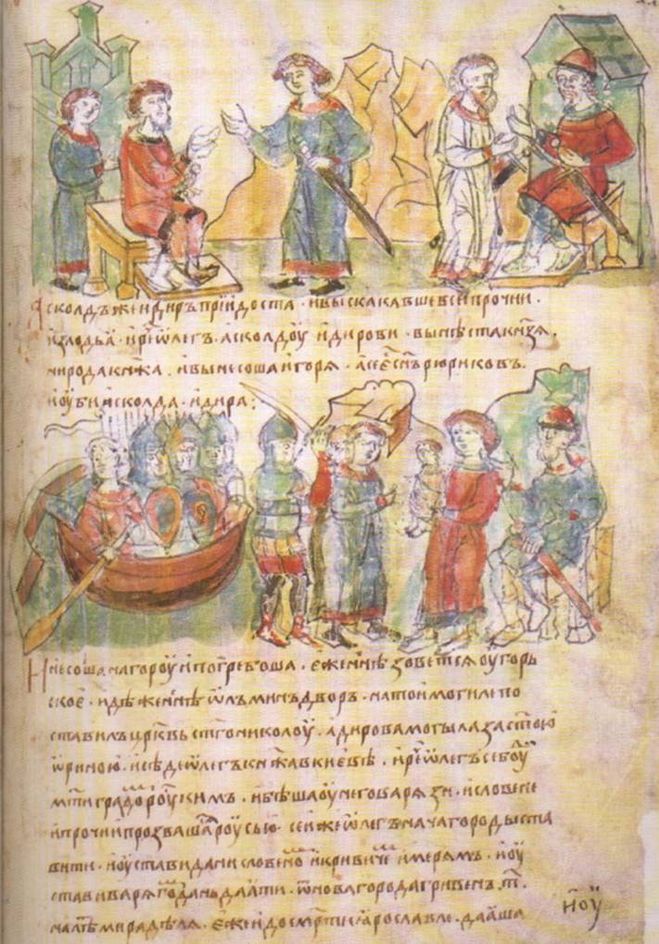 Асколдъ же и Диръ прїидоста · и выскакавше вси прочии ·
из лодьа · и рч҃е Ѡлегъ Асколдоу и Дирови · вы нѣста кнѧзѧ ·
ни рода кнѧжа · и вынесоша Игорѧ · а се есть с҃нъ Рюриковъ ·
и оубиша Асколда · и Дира :
И несоша на гороу и погребоша · еже нн҃ѣ зоветсѧ оугорь
ское · идѣже нн҃ѣ Ѡлъминъ дворъ · на тои могиле по
ставилъ црк҃вь ст҃го Николоу · а Дирова могыла за ст҃ою
Ѡриною · и сѣде Ѡлегъ кнѧжа в Киевѣ · и рч҃е Ѡлегъ се боуди
мт҃и градомъ роускимъ · и бѣша оу него варѧзи · и словене
и прочии прозвашасѧ роусью · сеи же Ѡлегъ нача городы ста
вити · и оустави дани словеномъ и кривичемъ и мерѧмъ · и оу
стави варѧгомъ дань даѧти · ѿ Новагорода гривенъ · т҃ ·
на лѣто мира дѣлѧ · еже и до см҃рти Ѧрославле · даѧша
и оу